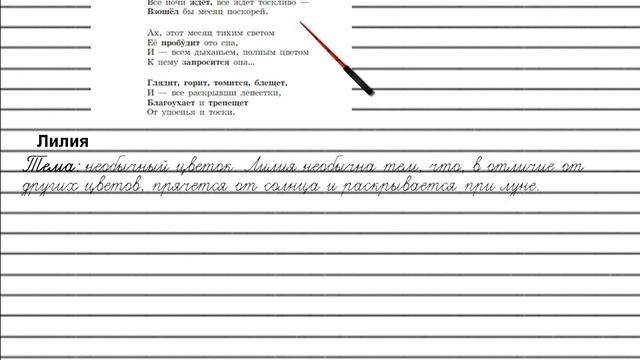 Все ночи ждёт, всё ждёт тоскливо —
Взошёл бы месяц поскорей.
Ах, этот месяц тихим светом
Её пробу́дит ото сна,
И — всем дыханьем, полным цветом
К нему запросится она...
Глядит, горит, томится, блещет,
И — все раскрывши лепестки,
Благоухает и трепещет
От упоенья и тоски.
Лилия
Тема: необычный цветок. Лилия необычна тем, что, в отличие от
других цветов, прячется от солнца и раскрывается при луне.